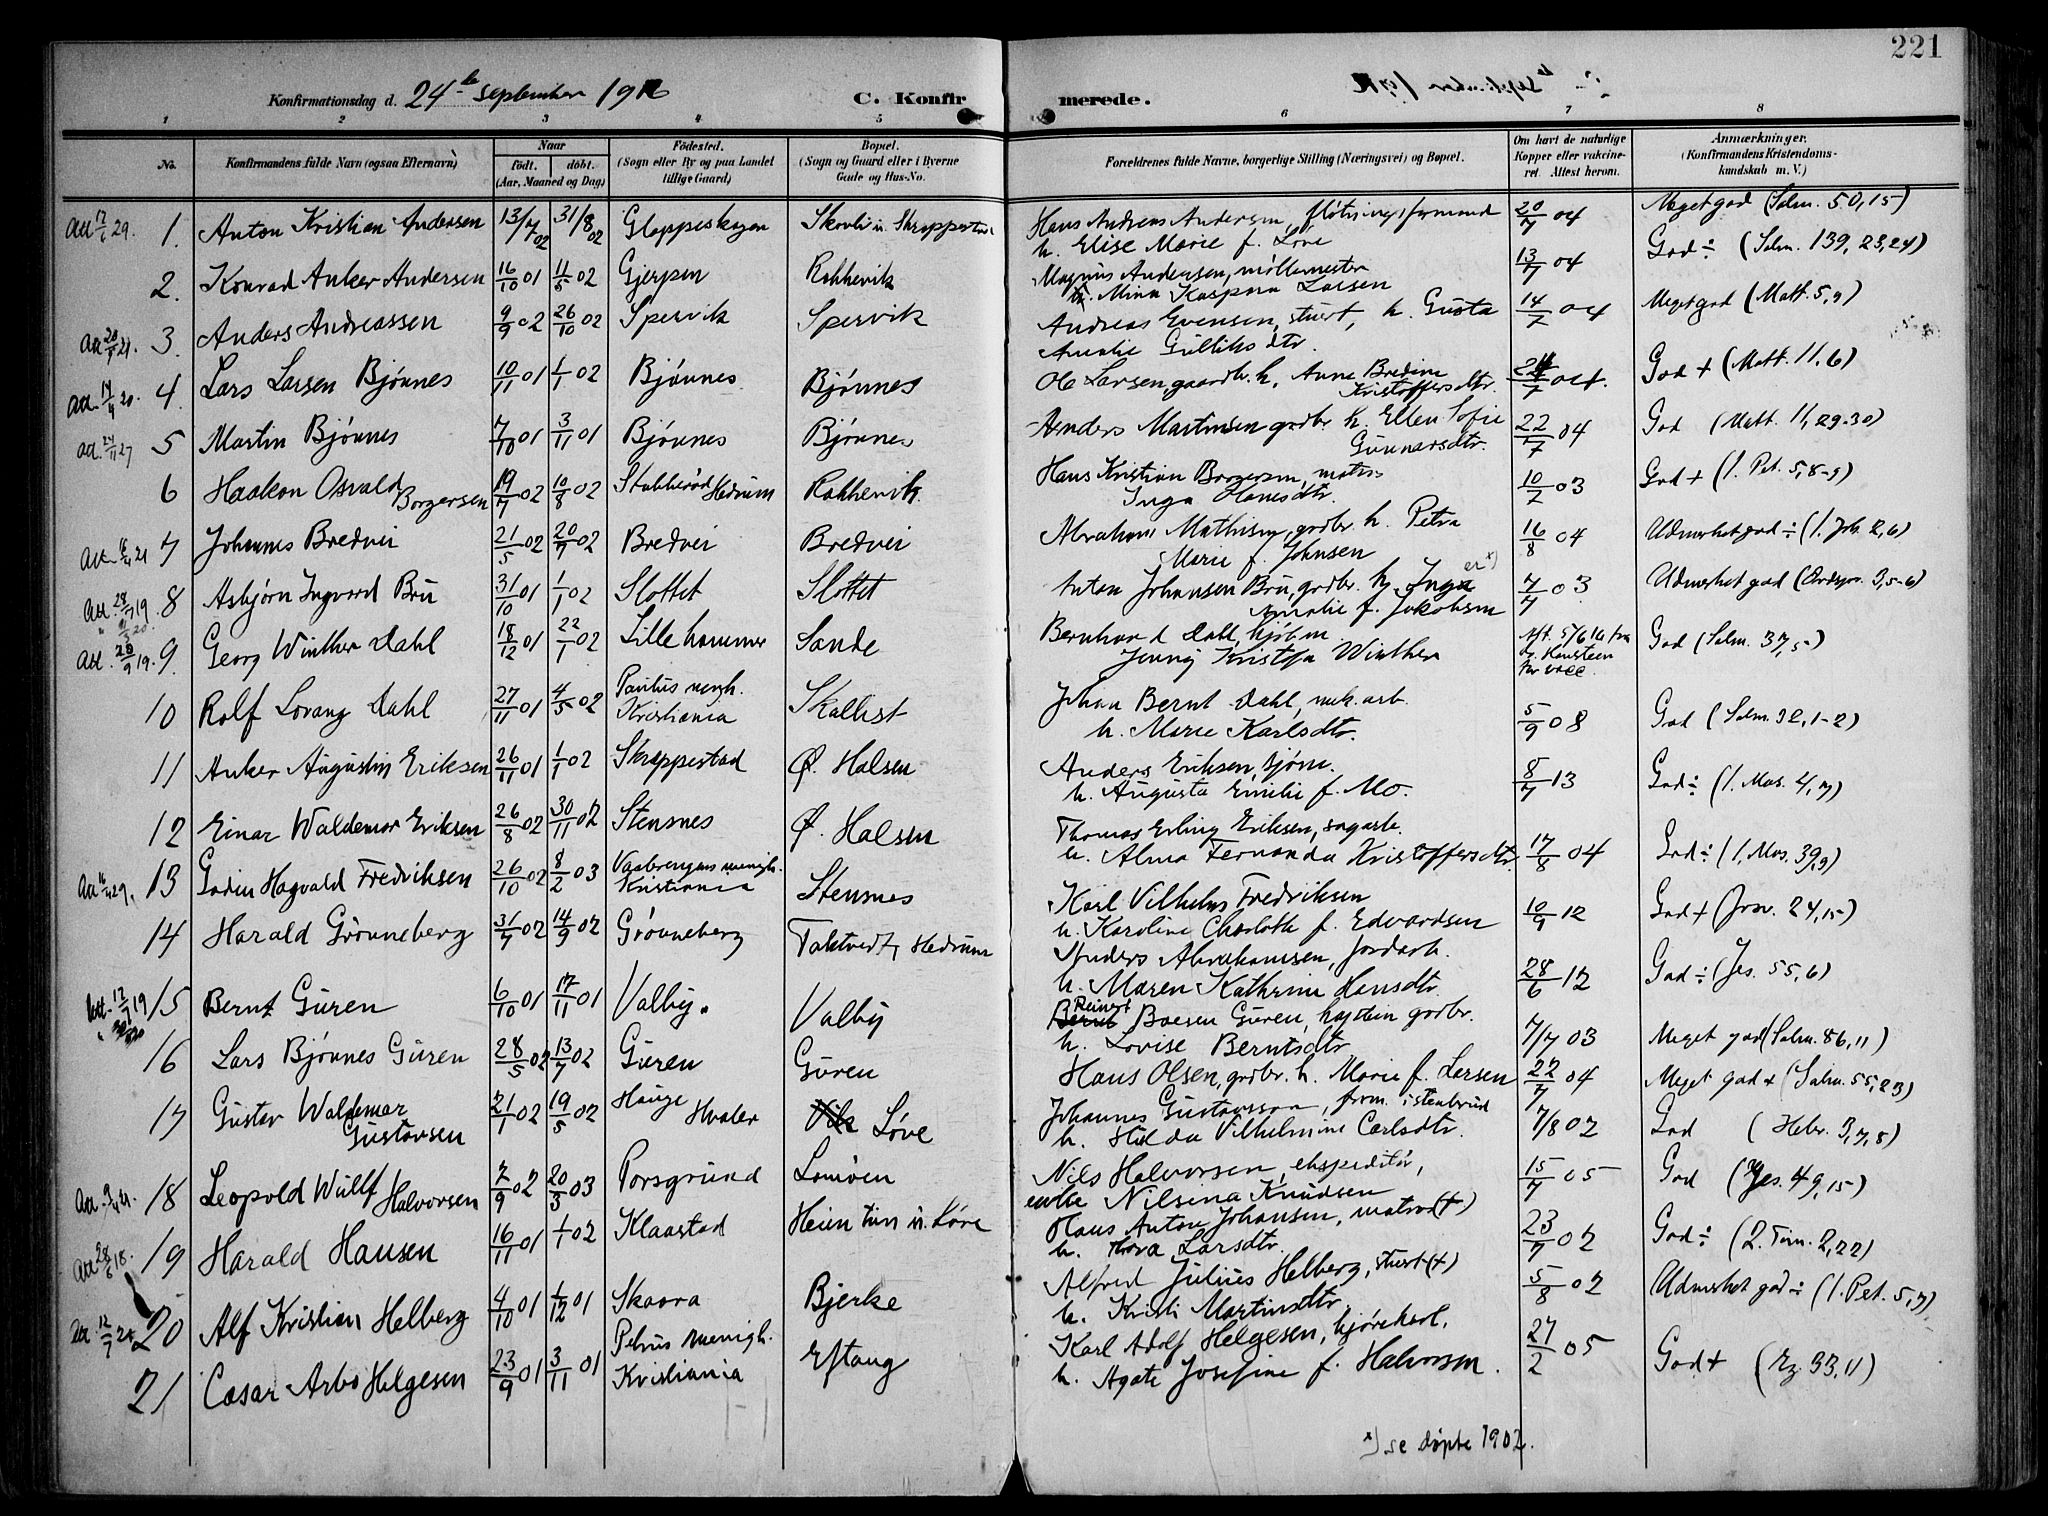 221
Konfirmationsdag d. 24de september 1916
C. Konfirmerede.
1 2 3 4 5 6 7 8
No.
Konfirmandens fulde Navn (ogsaa Efternavn)
Naar
født. døbt.
(Aar, Maaned og Dag)
Fødested.
(Sogn eller By og paa Landet
tillige Gaard)
Bopæl.
(Sogn og Gaard eller i Byerne
Gade og Hus-No.
Forældrenes fulde Navne, borgerlige Stilling (Næringsvei) og Bopæl.
Om havt de naturlige
Kopper eller vakcine-
ret. Attest herom.
Anmærkninger.
(Konfirmandens Kristendoms-
kundskab m. V.)
Att 17/6 29. 1. Anton Kristian Andersen 13/7 02 31/8 02 Gloppeskogen Skovli u. Skreppestad Hans Andreas Andersen, fløtningsformand 20/7 04 Meget god (Salm. 50,15)
h. Elise Marie f. Løve
2. Konrad Anker Andersen 16/10 01 11/5 02 Gjerpen Rakkevik Magnus Andersen, møllemester 13/7 04 God ÷ (Salm. 139, 23,24)
h. Mina Kaspara Larsen
3. Anders Andreassen 9/9 02 26/10 02 Spervik Spervik Andreas Evensen, stuert, h. Gusta 14/7 04 Meget god (Matt. 5,9)
Amalie Gulliksdtr.
4. Lars Larsen Bjønnes 10/11 01 1/1 02 Bjønnes Bjønnes Ole Larsen gaardbr. h. Anne Bredine 04. God + (Matt. 11,6)
Kristoffersdtr.
Att. 24/11 27 5 Martin Bjønnes 7/10 01 3/11 01 Bjønnes Bjønnes Anders Martinsen grdbr. h. Ellen Sofie 22/7 04 God (Matt. 11, 29-30)
Gunnarsdtr.
6 Haakon Osvald Borgersen 19/7 02 10/8 02 Stubberød Hedrum Rakkevik. Hans Kristian Borgersen, matr. 10/7 03 God + (1. Pet. 5,8-9)
Inga Hansdtr.
7 Johannes Bredvei 21/5 02 20/7 02 Bredvei Bredvei Abraham Mathisen, grdbr. h. Petra 16/8 04 Udmerket god ÷ (1. Joh. 2,6)
Marie f. Johnsen
8 Asbjørn Ingvard Bru 31/10 01 1/1 02 Slottet Slottet Anton Johansen Bru, grdbr. h. Inga x) 7/7 03 Udmerket god (Ordspr. 3,5-6)
Amalie f. Jakobsen
Att. 26/9 19. 9. Georg Winther Dahl 18/12 01 22/1 02 Lillehammer Sande Bernhard Dahl, kjøbm. God (Salm. 37,5)
Jenny Kristofa Winther
10 Rolf Lorang Dahl 27/11 01 4/5 02 Paulus menigh. Kristiania Skallist Johan Bernt Dahl, mek. arb. 5/9 08 God (Salm. 32, 1-2)
h. Marie Karlsdtr.
11 Anker Augustin Eriksen 26/11 01 1/1 02 Skreppestad Ø. Halsen Anders Eriksen, sjøm. 8/7 13 God ÷ (1. Mos. 4,7)
h. Augusta Emilie f. Mo.
12 Einar Waldemar Eriksen 26/8 02 30/11 02 Stensnes Ø. Halsen Thomas Erling Eriksen, sagarb. 17/8 04 God ÷ (1. Mos. 39,9)
h. Alma Fernanda Kristoffersdtr.
13 Godin Hagvald Fredriksen 26/10 02 8/2 03 Vaalerengens menigh. Kristiania Stensnes Karl Vilhelm Fredriksen 10/9 12 God + (Josv. 24,15)
h. Karoline Charlotte f. Edvardsen
14 Harald Grønneberg 31/7 02 14/9 02 Grønneberg Taktvedt, Hedrum Anders Abrahamsen, jordarb. 28/6 12 God ÷ (Jes. 55,6)
h. Maren Kathrine Hansdtr.
15 Bernt Guren 6/10 01 17/11 01 Valby. Valby Reinert Boesen Guren, kaptein grdbr. 7/7 03 Meget god (Salm. 86,11)
h. Lovise Berntsdtr
16 Lars Bjønnes Guren 28/5 02 13/7 02 Guren Guren Hans Olsen, grdbr. h. Marie f. Larsen 22/7 04 Meget god + (Salm. 55,23)
17 Gustav Waldemar Gustavsen 21/1 02 19/5 02 Hauge Hvaler Løve Johannes Gustavsson, form. i stenbrud 7/8 02 God (Hebr. 3,7,8)
h. Hilda Vilhelmine Carlsdtr.
18 Leopold Wulff Halvorsen 7/9 02 20/3 03 Porsgrund Lomøen Nils Halvorsen, ekspeditør, 15/7 05 God (Jes. 49,15)
enke Nilsina Knudsen
Att 28/6 18. 19 Harald Hansen 16/11 01 1/1 02 Klaastad Heien tun u. Løve Hans Anton Johansen, matros (+) 23/7 02 God ÷ (2. Tim. 2,22)
h. Thora Larsdtr.
20 Alf Kristian Helberg 4/10 01 1/12 01 Skaara Bjerke Alfred Julius Helberg, stuert (+) 5/8 02 Udmerket god ÷ (1. Pet. 5,7)
h. Kristi Martinsdtr.
21 Cæsar Arbo Helgesen 23/9 01 3/11 01 Petrus menigh. Kristiania Eftang Karl Adolf Helgesen, kjørekarl. 27/2 05 God + (Ez. 33,11)
h. Agate Josefine f. Halvorsen.
x) se døpte 1902.